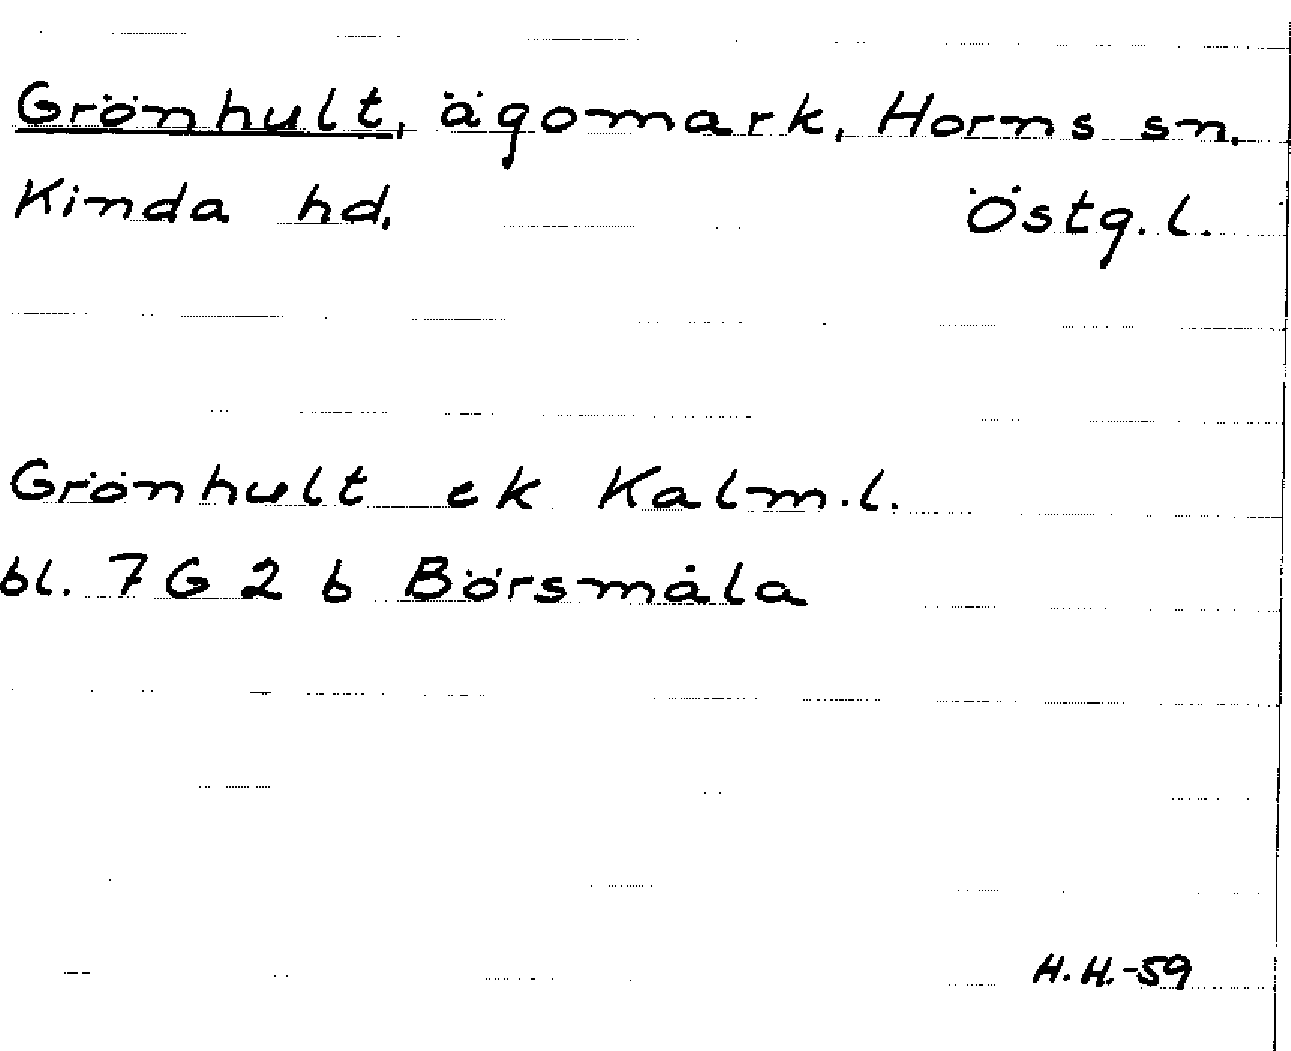 Grönhult, ägomark, Horns sn.
Kinda hd. Östg. l.
Grönhult ek Kalm. l.
bl. 7 G 2 b Börsmåla
H. H. -59